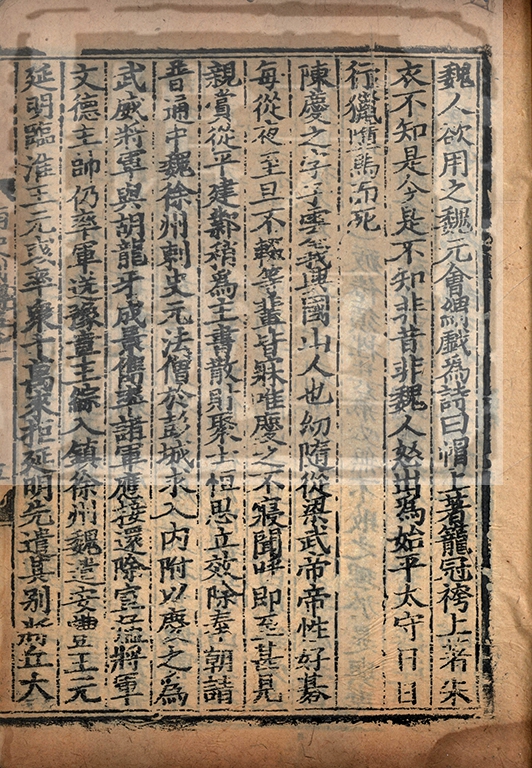 魏人欲用之魏元會緭戲為詩曰帽上著籠冠袴上著朱
衣不知是今是不知非昔非魏人怒出為始平太守日日
行獵墮馬而死
陳慶之字子雲義興國山人也幼隨從梁武帝帝性好碁
每從夜至旦不輟等輩皆寐唯慶之不寢聞呼即至甚見
親賞從平建鄴稍為主書散財聚士恒思立效除奉朝請
普通中魏徐州刺史元法僧於彭城求入內附以慶之為
武威將軍與胡龍牙成景儁率諸軍應接還除宣猛將軍
文德主帥仍率軍送豫章王綜入鎮徐州魏遣安豐王元
延明臨淮王元彧率衆十萬來拒延明先遣其別將丘大